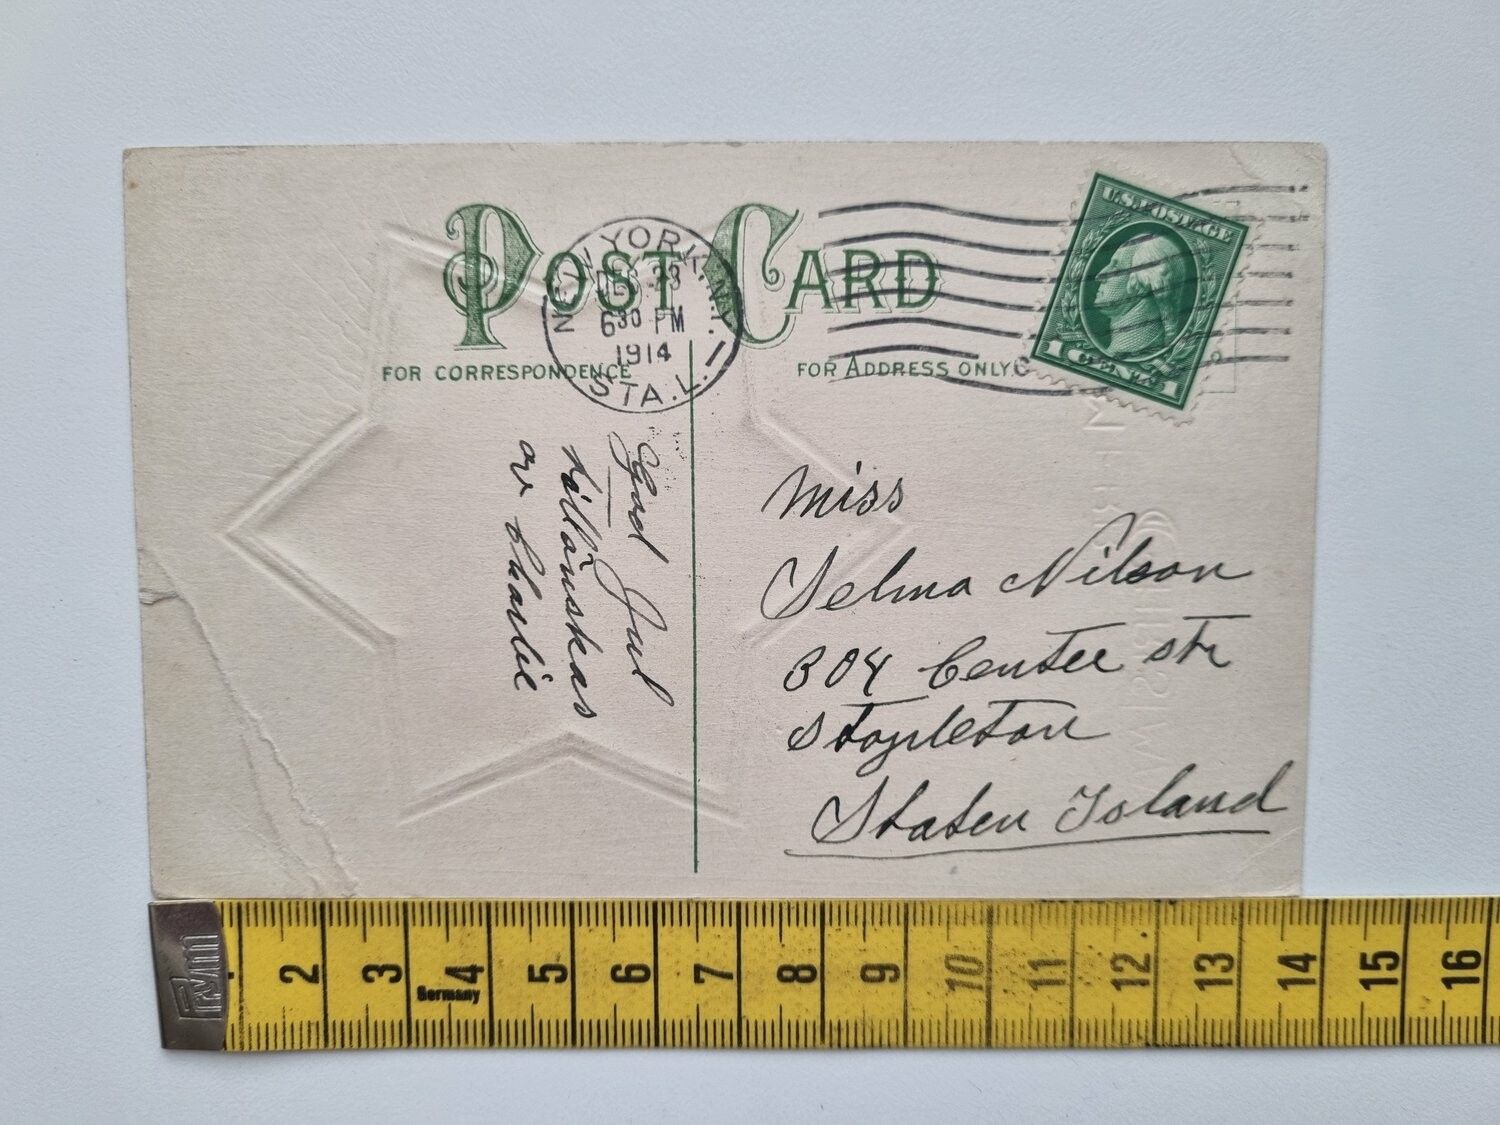 POST CARD
NEW YORK, N.Y.
DEC 23
6 30 PM
1914
STA. L.
U.S. POSTAGE
1 CENT 1
FOR CORRESPONDENCE
FOR ADDRESS ONLY.
God Jul
tillönskas
av Charlie
Miss
Selma Nilson
304 Center str
Stapleton
Staten Island
Prym
2 3 4 5 6 7 8 9 10 11 12 13 14 15 16
Germany